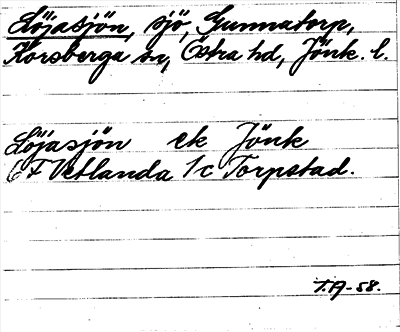 Löjasjön, sjö, Gunnatorp,
Korsberga sn, Östra hd, Jönk. l.
Löjasjön ek Jönk
6F Vetlanda 1c Torpstad.
T.A-58.